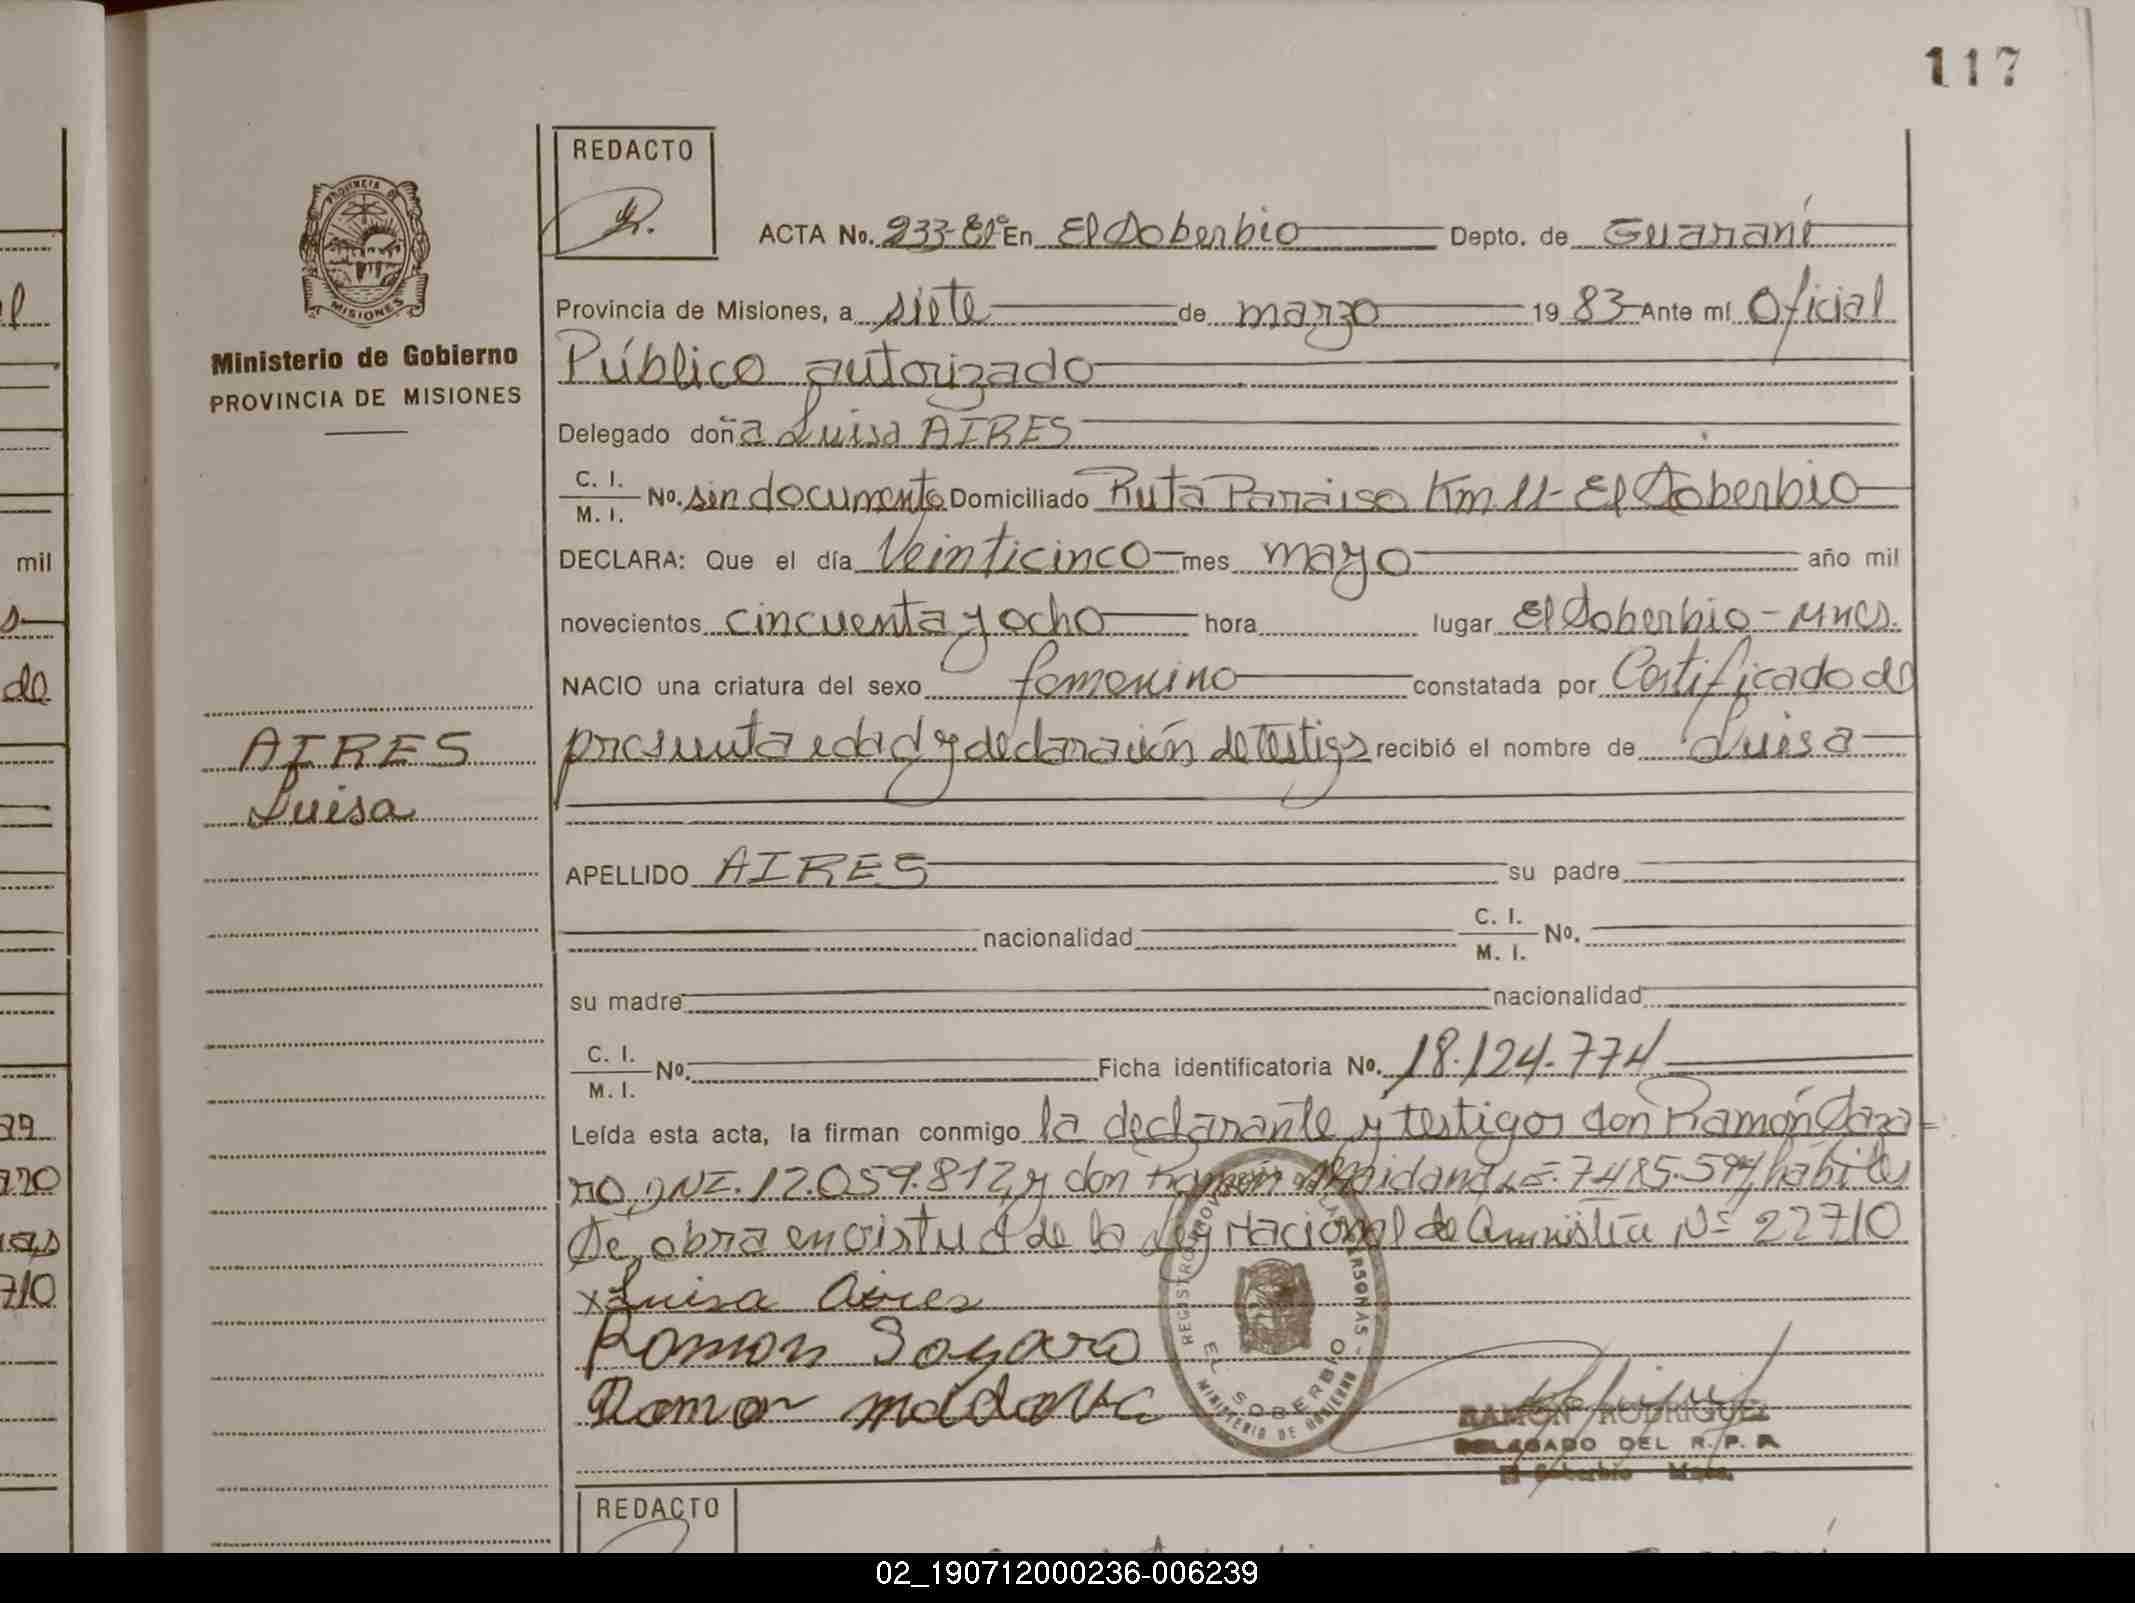 117
REDACTO
ACTA No. 233- En El Soberbio Depto. de Guaraní
Provincia de Misiones, a siete de marzo 19 83 Ante mí Oficial
Público autorizado
Ministerio de Gobierno
PROVINCIA DE MISIONES
Delegado doña Luisa AIRES
C. I.
M. I. No. sin documento Domiciliado Ruta Paraiso Km. 11- El Soberbio
DECLARA: Que el día Veinticinco mes mayo año mil
novecientos cincuenta y ocho hora lugar El Soberbio - Mnes.
NACIO una criatura del sexo femenino constatada por Certificado de
presunta edad y declaración de testigos recibió el nombre de Luisa
AIRES
Luisa
APELLIDO AIRES su padre
nacionalidad C. I.
M. I. No.
su madre nacionalidad
C. I.
M. I. No. Ficha identificatoria No. 18.124.774
Leída esta acta, la firman conmigo la declarante y testigos don Ramón
DNI. 12.059.812, y don Ramón LE. 7485.594, hábiles
Se obra en virtud de la ley Nacional de Amnistía Nº 22710
x Luisa Aires
Ramon
Ramon
REGISTRO PROVINCIAL PERSONAS
EL SOBERBIO
MINISTERIO DE GOBIERNO
MISIONES
RAMON RODRIGUEZ
DELEGADO DEL R. P. P.
El Soberbio Mnes.
REDACTO
mil
de
710
02_190712000236-006239